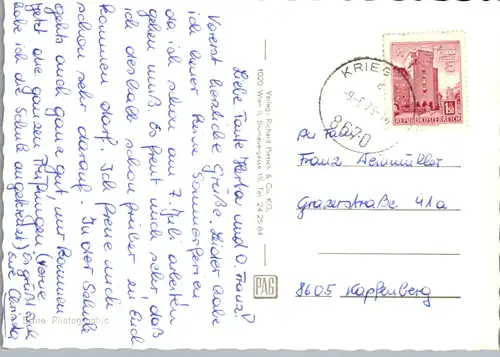 Liebe Tante Herta und O. Franz!
Vorerst herzliche Grüße. Leider habe
ich heuer keine Sommerferien
da ich schon am 7. Juli arbeiten
gehen muß. Es freut mich sehr, daß
ich deshalb schon früher zu Euch
kommen darf. Ich freue mich
schon sehr darauf. In der Schule
gehts auch ganz gut, wir kommen
jetzt die ganzen Prüfungen
habe ich die Schule Es grüßt Euch
eure
Echte Photographie
Verlag: Richard Pietsch & Co. KG.
1020 Wien II, Blumauergasse 19, Tel. 24 25 84
PAG
KRIEG
8670
REPUBLIK ÖSTERREICH
1.50
An Fam.
Franz Weinmüller
Grazerstraße 41a
8605 Kapfenberg